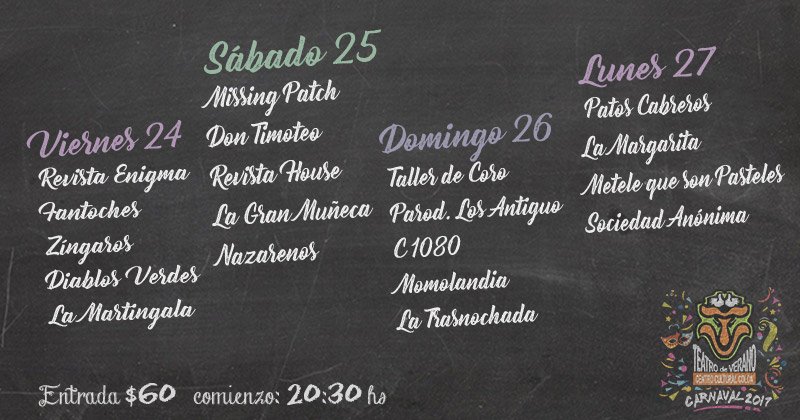 Viernes 24
Revista Enigma
Fantoches
Zíngaros
Diablos Verdes
La Martingala
Sábado 25
Missing Patch
Don Timoteo
Revista House
La Gran Muñeca
Nazarenos
Domingo 26
Taller de Coro
Parod. Los Antiguo
C 1080
Momolandia
La Trasnochada
Lunes 27
Patos Cabreros
La Margarita
Metele que son Pasteles
Sociedad Anónima
Entrada $60 comienzo: 20:30 hs
TEATRO de VERANO
CENTRO CULTURAL COLÓN
CARNAVAL 2017